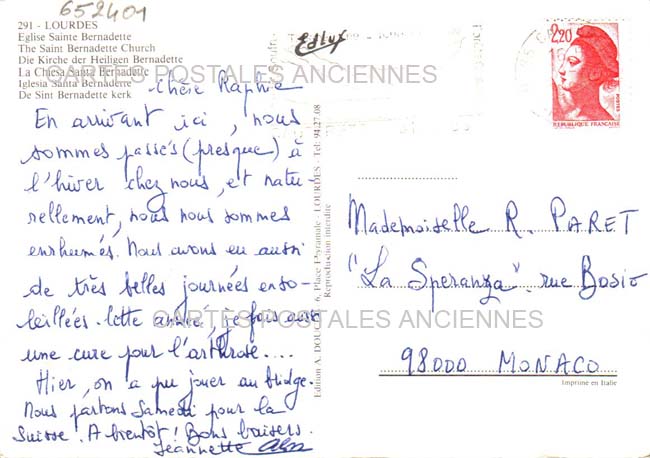 652401
291 - LOURDES
Eglise Sainte Bernadette
The Saint Bernadette Church
Die Kirche der Heiligen Bernadette
La Chiesa Santa Bernadette
Iglesia Santa Bernadette
De Sint Bernadette kerk
CARTES POSTALES ANCIENNES
Chère Raphie
En arrivant ici, nous
sommes passés (presque) à
l'hiver chez nous, et natu-
rellement, nous nous sommes
enrhumés. Nous avons eu aussi
de très belles journées enso-
leillées. Cette année, je fais aussi
une cure pour l'arthrose....
Hier, on a pu jouer au bridge.
Nous partons Samedi pour la
Suisse. A bientôt! Bons baisers.
Jeannette
Edition A. DOUC 6, Place Peyramale - LOURDES - Tel: 94.27.08
Reproduction interdite
2,20
POSTES
REPUBLIQUE FRANÇAISE
Mademoiselle R. PARET
"La Speranza" rue Bosio
CARTES POSTALES ANCIENNES
98000 MONACO
Imprimé en Italie